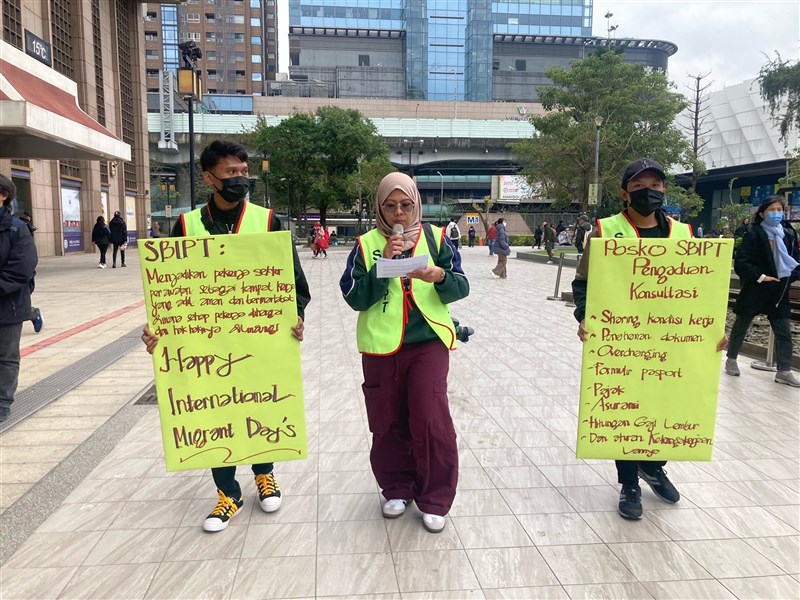 15°C
SBIPT :
Menjadikan pekerja sektor
perawatan sebagai tempat kerja
yang adil aman dan bermartabat
dimana setiap pekerja dihargai
dan hak haknya dilindungi
Happy
International
Migrant Day's
Posko SBIPT
Pengaduan
Konsultasi
- Sharing kondisi kerja
- Penahanan dokumen
- Overcharging
- Formulir pasport
- Pajak
- Asuransi
- Hitungan Gaji Lembur
- Dan aturan Ketenagakerjaan
Lainnya